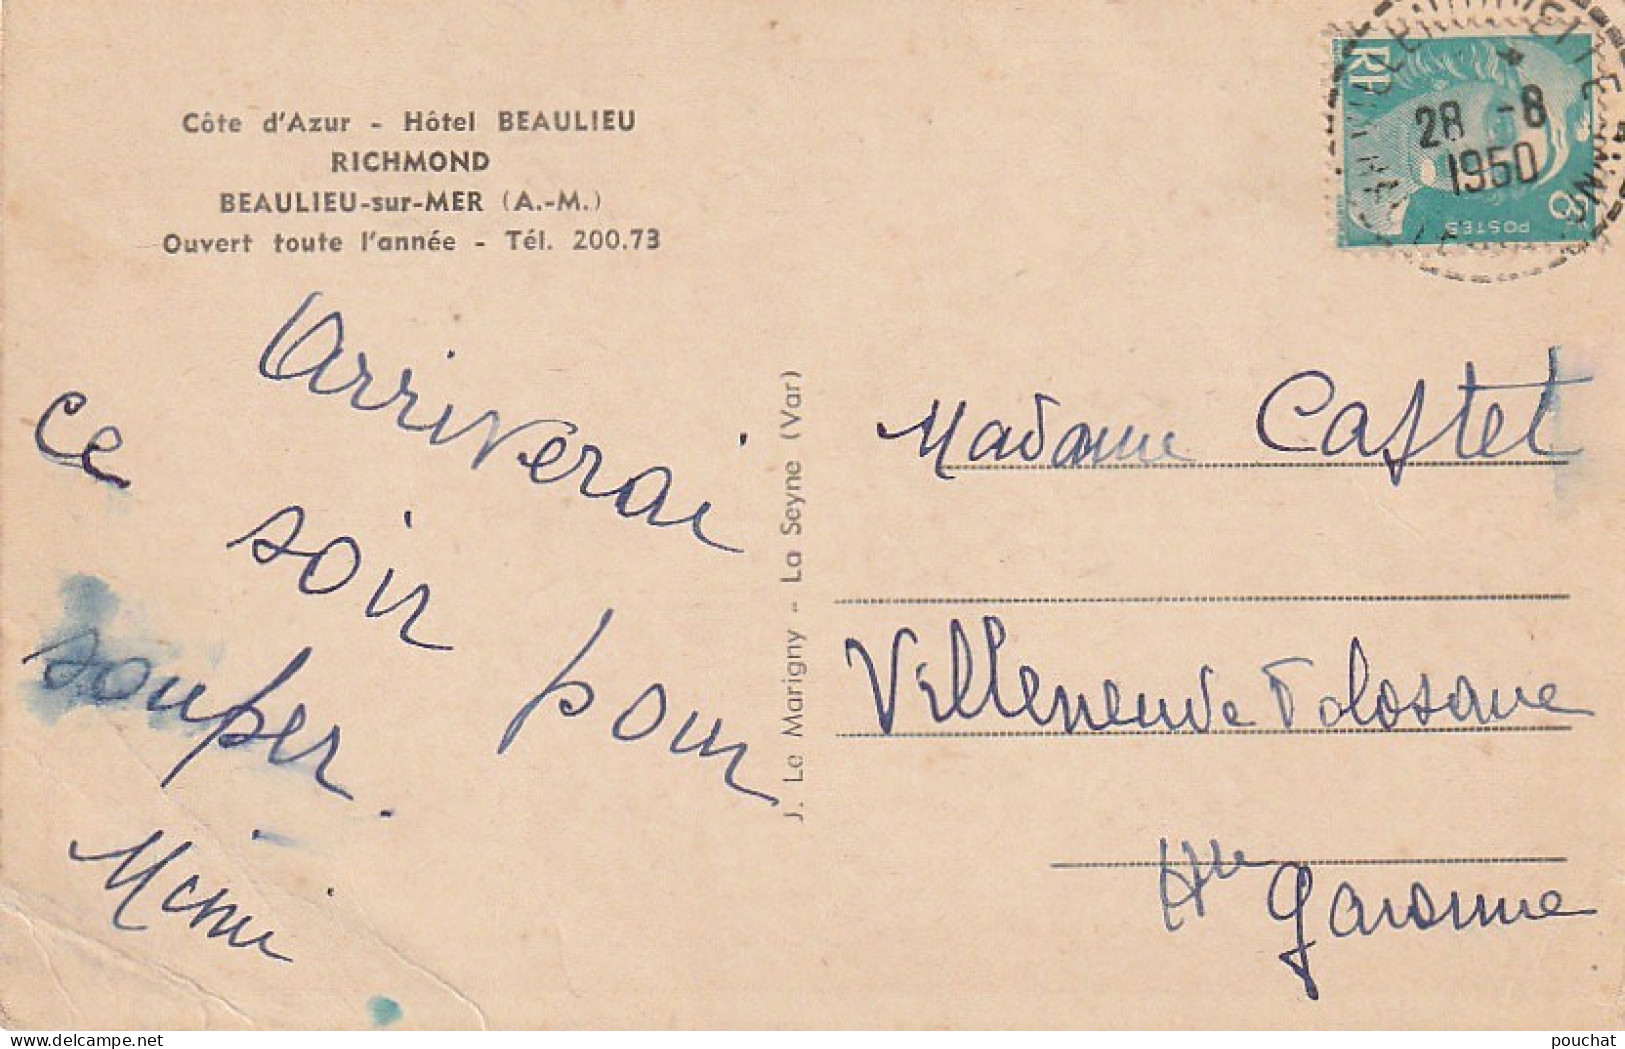 Côte d'Azur - Hôtel BEAULIEU
RICHMOND
BEAULIEU-sur-MER (A.-M.)
Ouvert toute l'année - Tél. 200.73
Arriverai
ce soir pour
souper.
Mimi
J. Le Marigny - La Seyne (Var)
RF
28 -8
1950
POSTES
8
Madame Castet
Villeneuve Tolosane
Hte Garonne
pouchat